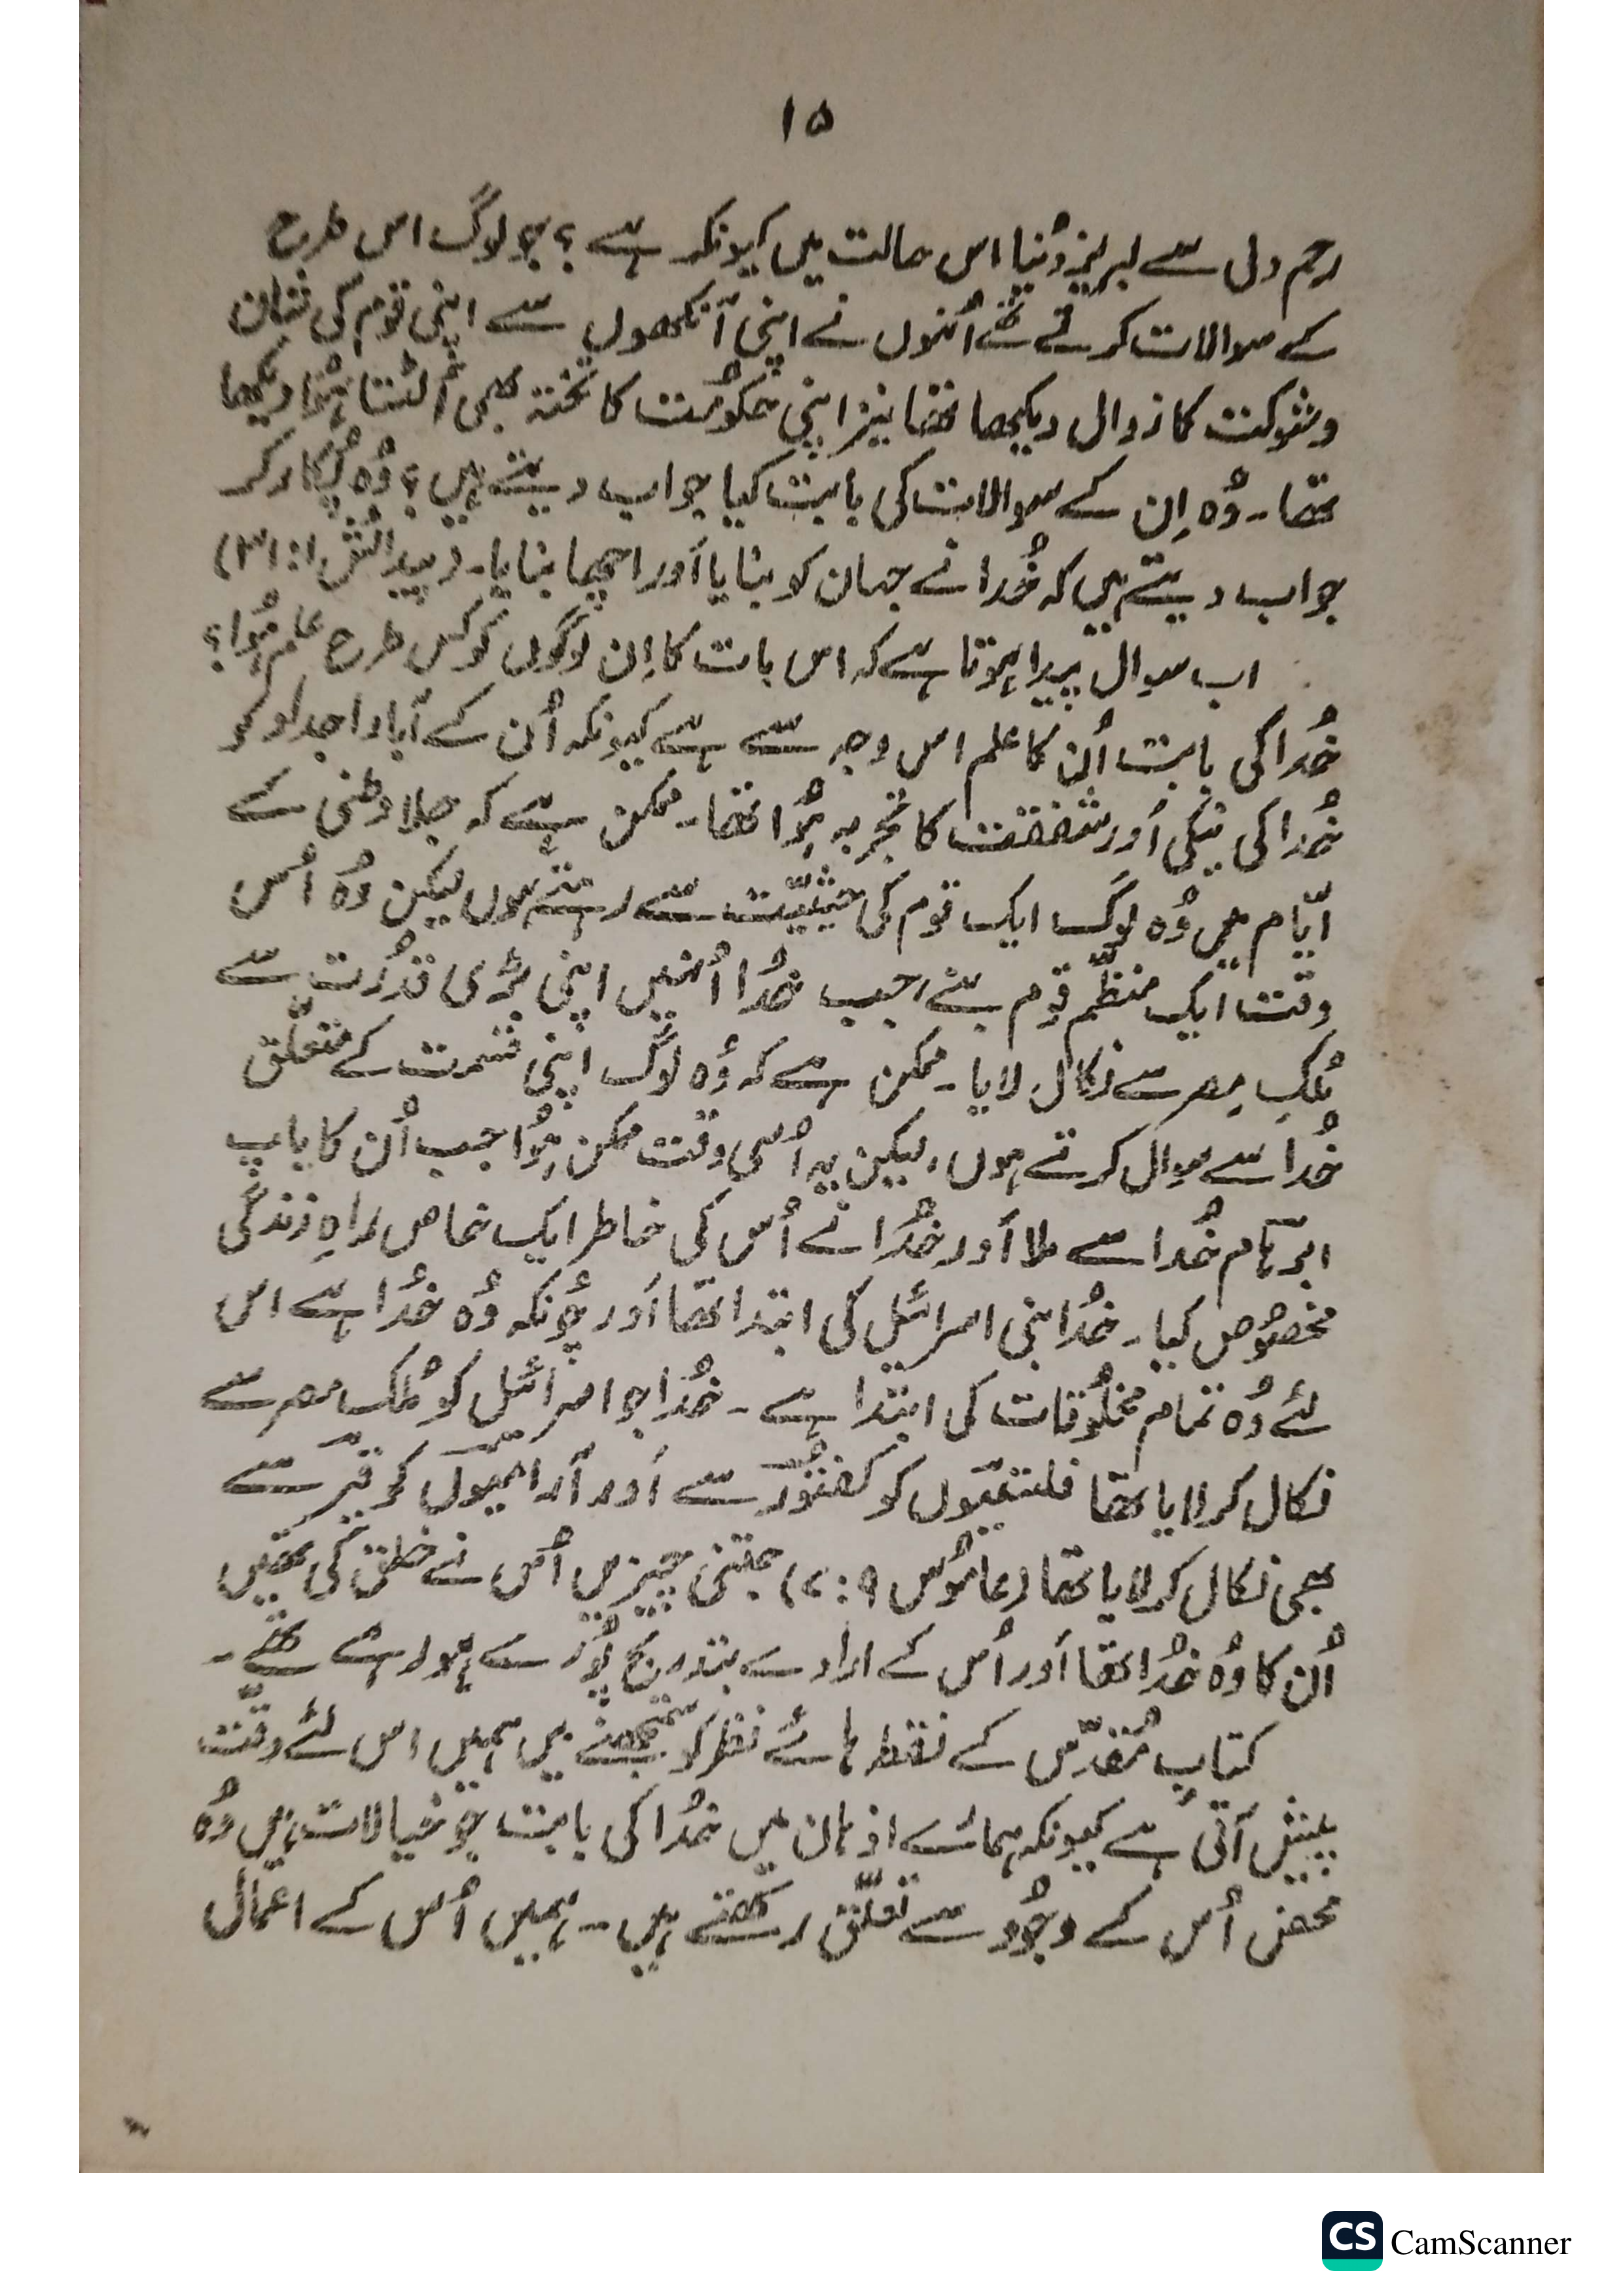 ۱۵
رحم دلی سے لبریز دُنیا اس حالت میں کیونکر ہے؟ جو لوگ اس طرح
کے سوالات کرتے تھے اُنہوں نے اپنی آنکھوں سے اپنی قوم کی شان
و شوکت کا زوال دیکھا تھا نیز اپنی حکومت کا تختہ بھی اُلٹتا ہُوا دیکھا
تھا۔ وُہ اِن کے سوالات کی بابت کیا جواب دیتے ہیں؟ وُہ پُکار کر
جواب دیتے ہیں کہ خُدا نے جہان کو بنایا اَور اچھا بنایا۔ (پیدائش ۱: ۳۱)
اب سوال پیدا ہوتا ہے کہ اس بات کا اِن لوگوں کو کس طرح علم ہُوا؟
خُدا کی بابت اُن کا علم اس وجہ سے ہے کیونکہ اُن کے آباو اجداد کو
خُدا کی نیکی اَور شفقت کا تجربہ ہُوا تھا۔ ممکن ہے کہ جلا وطنی کے
ایّام میں وُہ لوگ ایک قوم کی حیثیّت سے رہتے ہوں لیکن وُہ اُس
وقت ایک منظّم قوم بنے جب خُدا اُنہیں اپنی بڑی قُدرت سے
مُلکِ مِصر سے نکال لایا۔ ممکن ہے کہ وُہ لوگ اپنی قسمت کے متعلّق
خُدا سے سوال کرتے ہوں، لیکن یہ اُسی وقت ممکن ہُوا جب اُن کا باپ
ابرہام خُدا سے ملا اَور خُدا نے اُس کی خاطر ایک خاص راہِ زندگی
مخصُوص کیا۔ خُدا بنی اسرائیل کی ابتدا تھا اَور چُونکہ وُہ خُدا ہے اس
لئے وُہ تمام مخلُوقات کی ابتدا ہے۔ خُدا جو اسرائیل کو مُلک مصر سے
نکال کر لایا تھا فلستیوں کو کفتُور سے اَور آرامیوں کو قیر سے
بھی نکال کر لایا تھا (عامُوس ۹: ۷) جتنی چیزیں اُس نے خلق کی تھیں
اُن کا وُہ خُدا تھا اَور اُس کے ارادے بتدریج پُورے ہو رہے تھے۔
کتابِ مُقدّس کے نقطہ ہائے نظر کو سمجھنے میں ہمیں اس لئے دقّت
پیش آتی ہے کیونکہ ہمارے اذہان میں خُدا کی بابت جو خیالات ہیں وُہ
محض اُس کے وجُود سے تعلّق رکھتے ہیں۔ ہمیں اُس کے اعمال
CS CamScanner